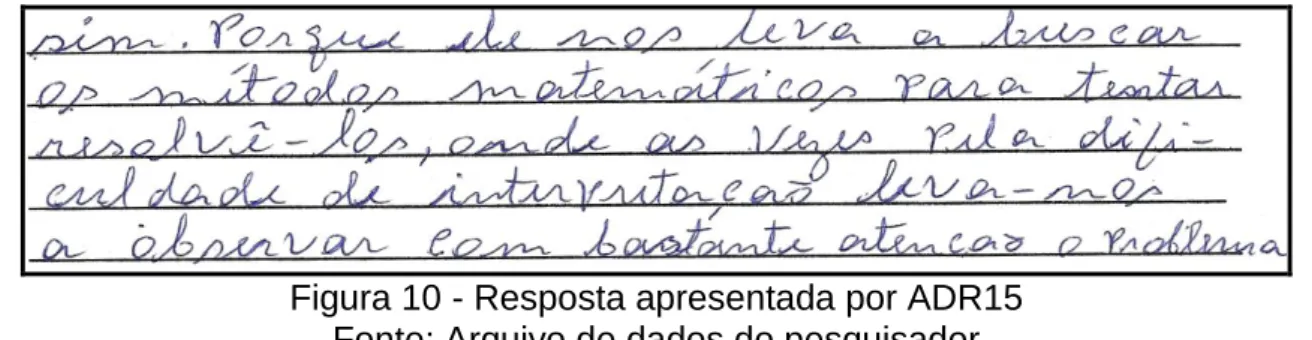 sim. Porque ele nos leva a buscar
os métodos matemáticos para tentar
resolvê-los, onde as vezes pela difi-
culdade de interpretação leva-nos
a observar com bastante atencao o problema
Figura 10 - Resposta apresentada por ADR15
Fonte: Arquivo de dados do pesquisador